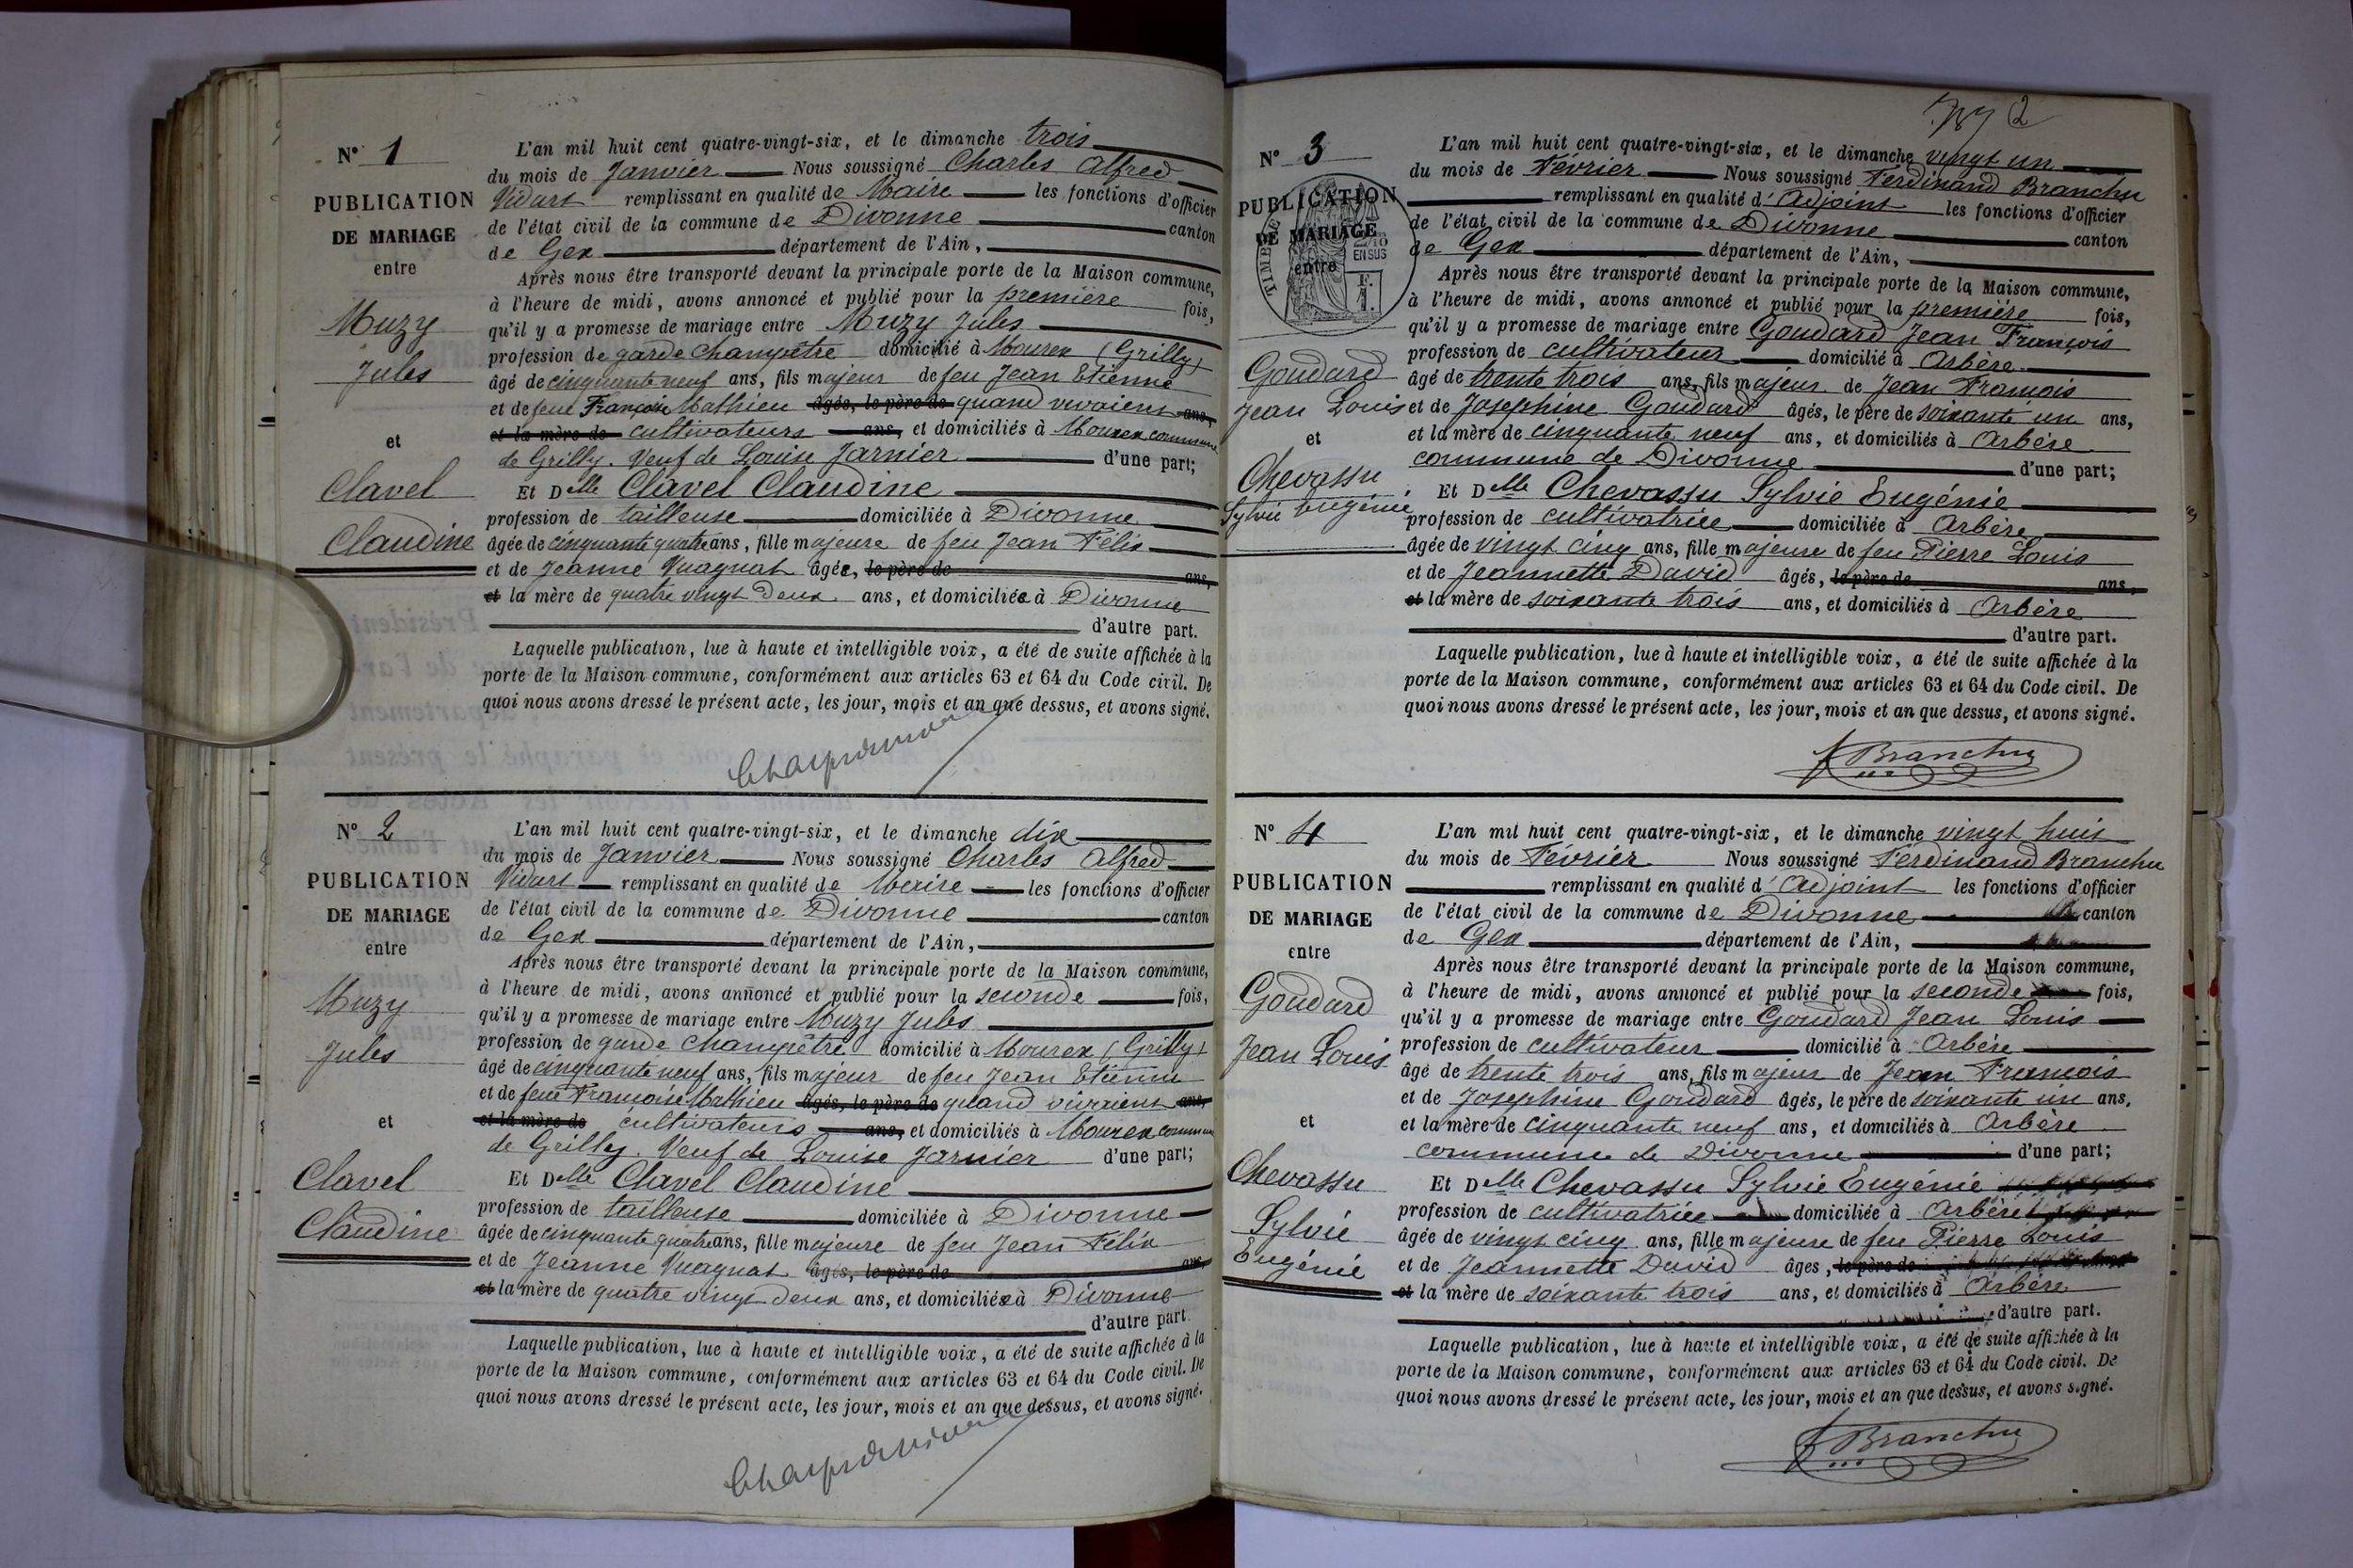 N° 1
PUBLICATION
DE MARIAGE
entre
Muzy
Jules
et
Clavel
Claudine
L'an mil huit cent quatre-vingt-six, et le dimanche trois
du mois de Janvier Nous soussigné Charles Alfred
Vidart remplissant en qualité de Maire les fonctions d'officier
de l'état civil de la commune de Divonne canton
de Gex département de l'Ain,
Après nous être transporté devant la principale porte de la Maison commune,
à l'heure de midi, avons annoncé et publié pour la première fois,
qu'il y a promesse de mariage entre Muzy Jules
profession de garde champêtre domicilié à Mourex (Grilly)
âgé de cinquante neuf ans, fils majeur de feu Jean Etienne
et de feue Françoise Mathieu âgés, le père de quand vivaient ans,
et la mère de cultivateurs ans, et domiciliés à Mourex commune
de Grilly. Veuf de Louise Jarnier d'une part;
Et Delle Clavel Claudine
profession de tailleuse domiciliée à Divonne
âgée de cinquante quatre ans, fille majeure de feu Jean Félix
et de Jeanne Vuagnat âgée, le père de ans,
et la mère de quatre vingt deux ans, et domiciliée à Divonne
d'autre part.
Laquelle publication, lue à haute et intelligible voix, a été de suite affichée à la
porte de la Maison commune, conformément aux articles 63 et 64 du Code civil. De
quoi nous avons dressé le présent acte, les jour, mois et an que dessus, et avons signé.
N° 2
PUBLICATION
DE MARIAGE
entre
Muzy
Jules
et
Clavel
Claudine
L'an mil huit cent quatre-vingt-six, et le dimanche dix
du mois de Janvier Nous soussigné Charles Alfred
Vidart remplissant en qualité de Maire les fonctions d'officier
de l'état civil de la commune de Divonne canton
de Gex département de l'Ain,
Après nous être transporté devant la principale porte de la Maison commune,
à l'heure de midi, avons annoncé et publié pour la seconde fois,
qu'il y a promesse de mariage entre Muzy Jules
profession de garde champêtre domicilié à Mourex (Grilly)
âgé de cinquante neuf ans, fils majeur de feu Jean Etienne
et de feue Françoise Mathieu âgés, le père de quand vivaient ans,
et la mère de cultivateurs ans, et domiciliés à Mourex commune
de Grilly. Veuf de Louise Jarnier d'une part;
Et Delle Clavel Claudine
profession de tailleuse domiciliée à Divonne
âgée de cinquante quatre ans, fille majeure de feu Jean Félix
et de Jeanne Vuagnat âgés, le père de ans,
et la mère de quatre vingt deux ans, et domiciliée à Divonne
d'autre part.
Laquelle publication, lue à haute et intelligible voix, a été de suite affichée à la
porte de la Maison commune, conformément aux articles 63 et 64 du Code civil. De
quoi nous avons dressé le présent acte, les jour, mois et an que dessus, et avons signé.
2
N° 3
PUBLICATION
DE MARIAGE
entre
Goudard
Jean Louis
et
Chevassu
Sylvie Eugénie
L'an mil huit cent quatre-vingt-six, et le dimanche vingt un
du mois de Février Nous soussigné Ferdinand Branchu
remplissant en qualité d'Adjoint les fonctions d'officier
de l'état civil de la commune de Divonne canton
de Gex département de l'Ain,
Après nous être transporté devant la principale porte de la Maison commune,
à l'heure de midi, avons annoncé et publié pour la première fois,
qu'il y a promesse de mariage entre Goudard Jean François
profession de cultivateur domicilié à Arbère
âgé de trente trois ans, fils majeur de Jean François
et de Josephine Goudard âgés, le père de soixante un ans,
et la mère de cinquante neuf ans, et domiciliés à Arbère
commune de Divonne d'une part;
Et Delle Chevassu Sylvie Eugénie
profession de cultivatrice domiciliée à Arbère
âgée de vingt cinq ans, fille majeure de feu Pierre Louis
et de Jeannette David âgés, le père de ans,
et la mère de soixante trois ans, et domiciliés à Arbère
d'autre part.
Laquelle publication, lue à haute et intelligible voix, a été de suite affichée à la
porte de la Maison commune, conformément aux articles 63 et 64 du Code civil. De
quoi nous avons dressé le présent acte, les jour, mois et an que dessus, et avons signé.
F Branchu
N° 4
PUBLICATION
DE MARIAGE
entre
Goudard
Jean Louis
et
Chevassu
Sylvie
Eugénie
L'an mil huit cent quatre-vingt-six, et le dimanche vingt huit
du mois de Février Nous soussigné Ferdinand Branchu
remplissant en qualité d'Adjoint les fonctions d'officier
de l'état civil de la commune de Divonne canton
de Gex département de l'Ain,
Après nous être transporté devant la principale porte de la Maison commune,
à l'heure de midi, avons annoncé et publié pour la seconde fois,
qu'il y a promesse de mariage entre Goudard Jean Louis
profession de cultivateur domicilié à Arbère
âgé de trente trois ans, fils majeur de Jean François
et de Josephine Goudard âgés, le père de soixante un ans,
et la mère de cinquante neuf ans, et domiciliés à Arbère
commune de Divonne d'une part;
Et Delle Chevassu Sylvie Eugénie
profession de cultivatrice domiciliée à Arbère
âgée de vingt cinq ans, fille majeure de feu Pierre Louis
et de Jeannette David âges, le père de
et la mère de soixante trois ans, et domiciliés à Arbère
d'autre part.
Laquelle publication, lue à haute et intelligible voix, a été de suite affichée à la
porte de la Maison commune, conformément aux articles 63 et 64 du Code civil. De
quoi nous avons dressé le présent acte, les jour, mois et an que dessus, et avons signé.
F Branchu